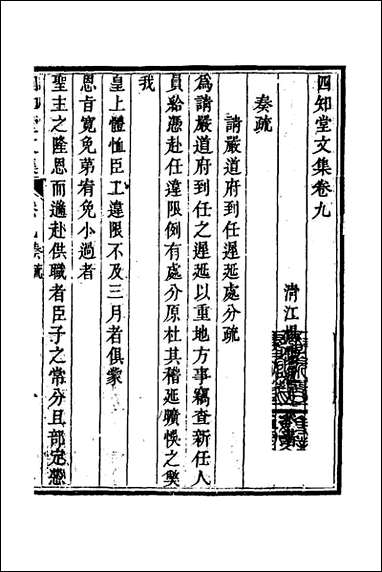 四知堂文集卷九
清江楊
奏疏
請嚴道府到任遲延處分疏
為請嚴道府到任之遲延以重地方事竊查新任人
員給憑赴任違限例有處分原杜其稽延曠悞之獘
我
皇上體恤臣工違限不及三月者俱蒙
恩旨寬免苐宥免小過者
聖主之隆恩而遄赴供職者臣子之常分且部定憑